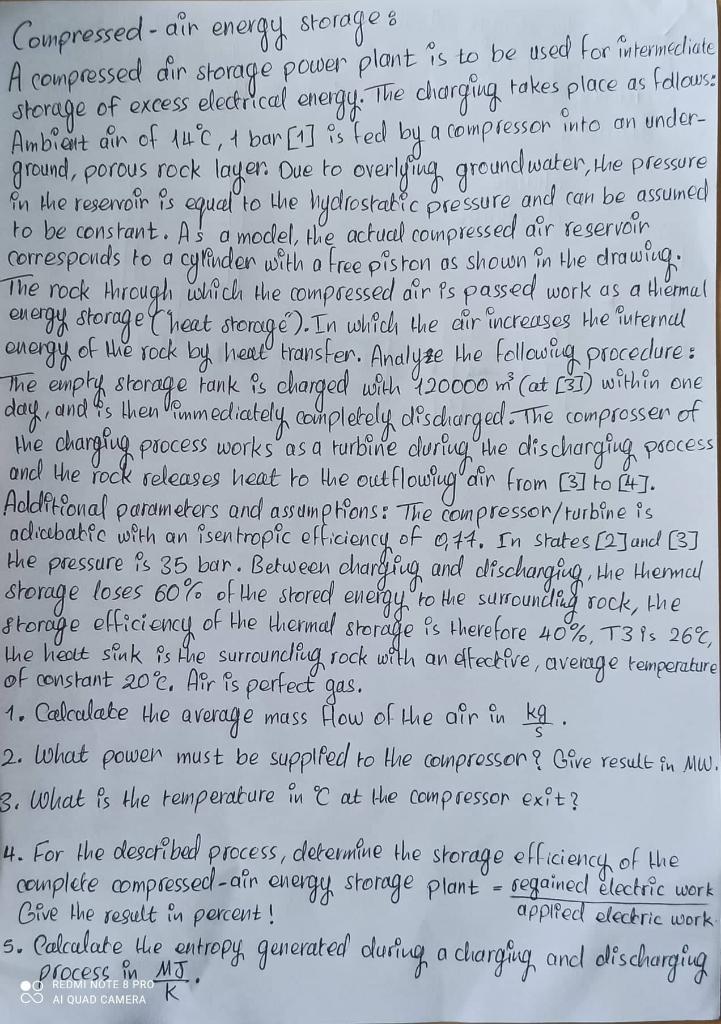 Compressed-air energy storage:
A compressed air storage power plant is to be used for intermediate
storage of excess electrical energy. The charging takes place as follows:
Ambient air of 14°C, 1 bar [1] is fed by a compressor into an under-
ground, porous rock layer. Due to overlying groundwater, the pressure
in the reservoir is equal to the hydrostatic pressure and can be assumed
to be constant. As a model, the actual compressed air reservoir
corresponds to a cylinder with a free piston as shown in the drawing.
The rock through which the compressed air is passed work as a thermal
energy storage ("heat storage"). In which the air increases the internal
energy of the rock by heat transfer. Analyze the following procedure:
The empty storage tank is charged with 120000 m³ (at [3]) within one
day, and is then immediately completely discharged. The comprosser of
the charging process works as a turbine during the discharging process
and the rock releases heat to the outflowing air from [3] to [4].
Additional parameters and assumptions: The compressor/turbine is
adiabatic with an isentropic efficiency of 0,77. In states [2] and [3]
the pressure is 35 bar. Between charging and discharging, the thermal
storage loses 60% of the stored energy to the surrounding rock, the
storage efficiency of the thermal storage is therefore 40%, T3 is 26°C,
the heat sink is the surrounding rock with an effective, average temperature
of constant 20°C. Air is perfect gas.
1. Calculate the average mass flow of the air in kg/s.
2. What power must be supplied to the compressor? Give result in MW.
3. What is the temperature in °C at the compressor exit?
4. For the described process, determine the storage efficiency of the
complete compressed-air energy storage plant = regained electric work
Give the result in percent! applied electric work
5. Calculate the entropy generated during a charging and discharging
process in MJ/K.
REDMI NOTE 8 PRO
AI QUAD CAMERA